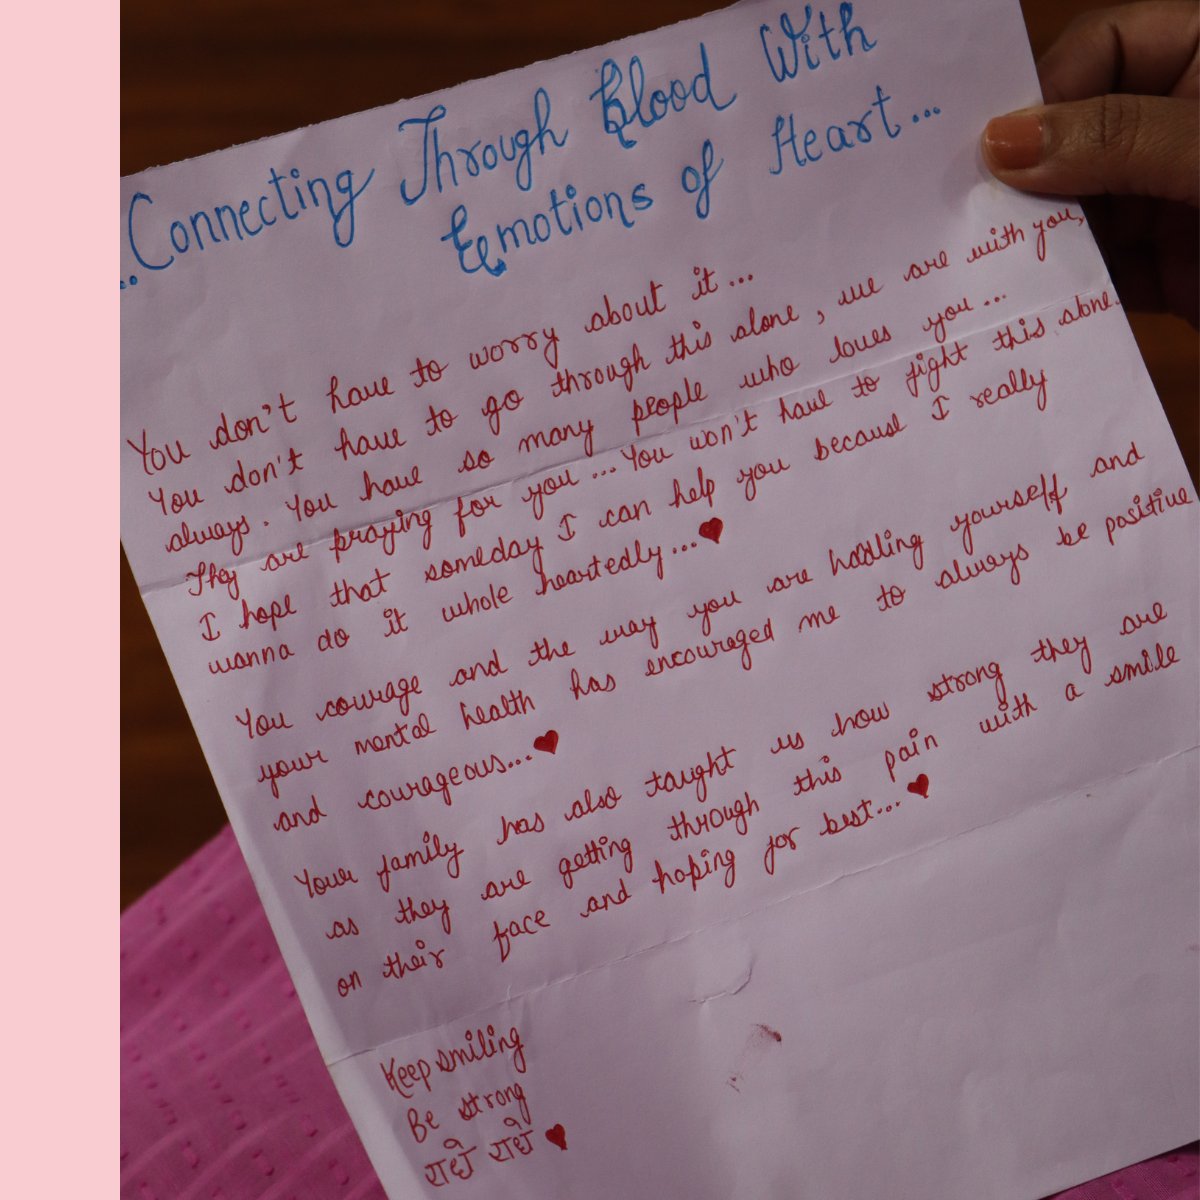 ..Connecting Through Blood With
Emotions of Heart...
You don't have to worry about it...
You don't have to go through this alone, we are with you,
always. You have so many people who loves you...
They are praying for you... You won't have to fight this alone.
I hope that someday I can help you because I really
wanna do it whole heartedly...♥
You courage and the way you are handling yourself and
your mental health has encouraged me to always be positive
and courageous...♥
Your family has also taught us how strong they are
as they are getting through this pain with a smile
on their face and hoping for best...♥
Keep smiling
Be strong
राधे राधे ♥